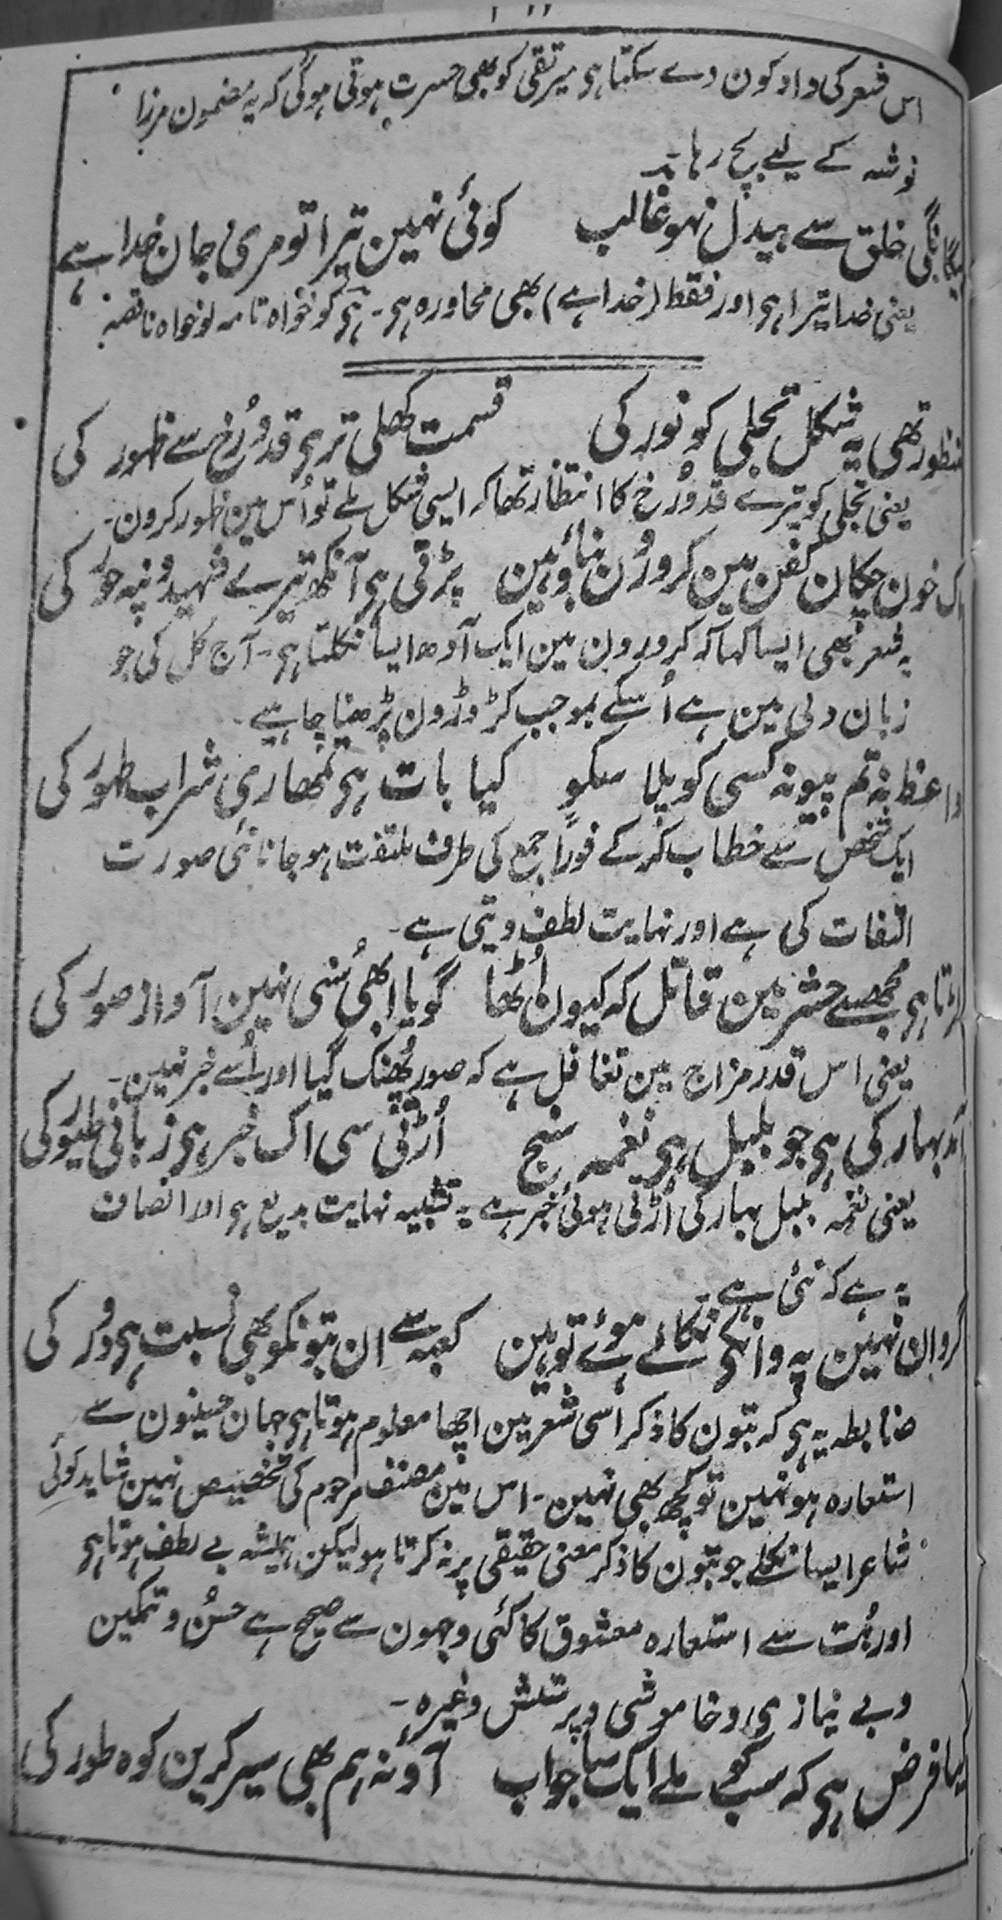 اس شعر کی داد کون دے سکتا ہی میر تقی کو بھی حسرت ہوتی ہوگی کہ یہ مضمون مرزا
نوشہ کے لیے بچ رہا۔
بیگانگی خلق سے بیدل نہو غالب کوئی نہین تیرا تو مری جان خدا ہے
یعنی خدا تیرا ہی اور فقط (خدا ہے) بھی محاورہ ہی۔ ہی کو خواہ تامہ لو خواہ ناقصہ
منظور تھی یہ شکل تجلی کو نور کی قسمت کھلی ترے قد و رُخ سے ظہور کی
یعنی تجلی کو تیرے قد و رُخ کا انتظار تھا کہ ایسی شکل ملے تو اُس مین ظہور کرون۔
اک خون چکان کفن مین کرورُن بناؤ ہین پڑتی ہی آنکھ تیرے شہیدونپہ حور کی
یہ شعر بھی ایسا کہا کہ کرورون مین ایک آدھ ایسا نکلتا ہی۔ آج کل کی جو
زبان دلی مین ہے اُسکے بموجب کڑوڑون پڑھنا چاہیے۔
واعظ نہ تم پیو نہ کسی کو پلا سکو کیا بات ہی تمھاری شراب طہور کی
ایک شخص سے خطاب کر کے فوراً جمع کی طرف ملتفت ہو جانا نئی صورت
التفات کی ہے اور نہایت لطف دیتی ہے۔
لڑتا ہی مجھسے حشر مین قاتل کہ کیون اُٹھا گویا ابھی سُنی نہین آواز صور کی
یعنی اس قدر مزاج مین تغافل ہے کہ صور پُھنک گیا اور اُسے خبر نہین۔
آمد بہار کی ہی جو بلبل ہی نغمہ سنج اُڑتی سی اک خبر ہی زبانی طیور کی
یعنی نغمہ بلبل بہار کی اُڑتی ہوئی خبر ہے یہ تشبیہ نہایت بدیع ہی اور انصاف
یہ ہے کہ نئی ہے
گر وان نہین پہ وانکے نکالے ہوئے تو ہین کعبہ سے ان بتونکو بھی نسبت ہی دُور کی
ضابطہ یہ ہی کہ بتون کا ذکر اسی شعر مین اچھا معلوم ہوتا ہی جہان حسینون سے
استعارہ ہو نہین تو کچھ بھی نہین۔ اس مین مصنف مرحوم کی تخصیص نہین شاید کوئی
شاعر ایسا نکلے جو بتون کا ذکر معنی حقیقی پر نہ کرتا ہو لیکن ہمیشہ بے لطف ہوتا ہی
اور بُت سے استعارہ معشوق کا کئی وجہون سے صحیح ہے حسُن و تمکین
و بے نیازی و خاموشی و پرستش وغیرہ۔
کیا فرض ہی کہ سب کو ملے ایک سا جواب آؤ نہ ہم بھی سیر کرین کوہ طور کی